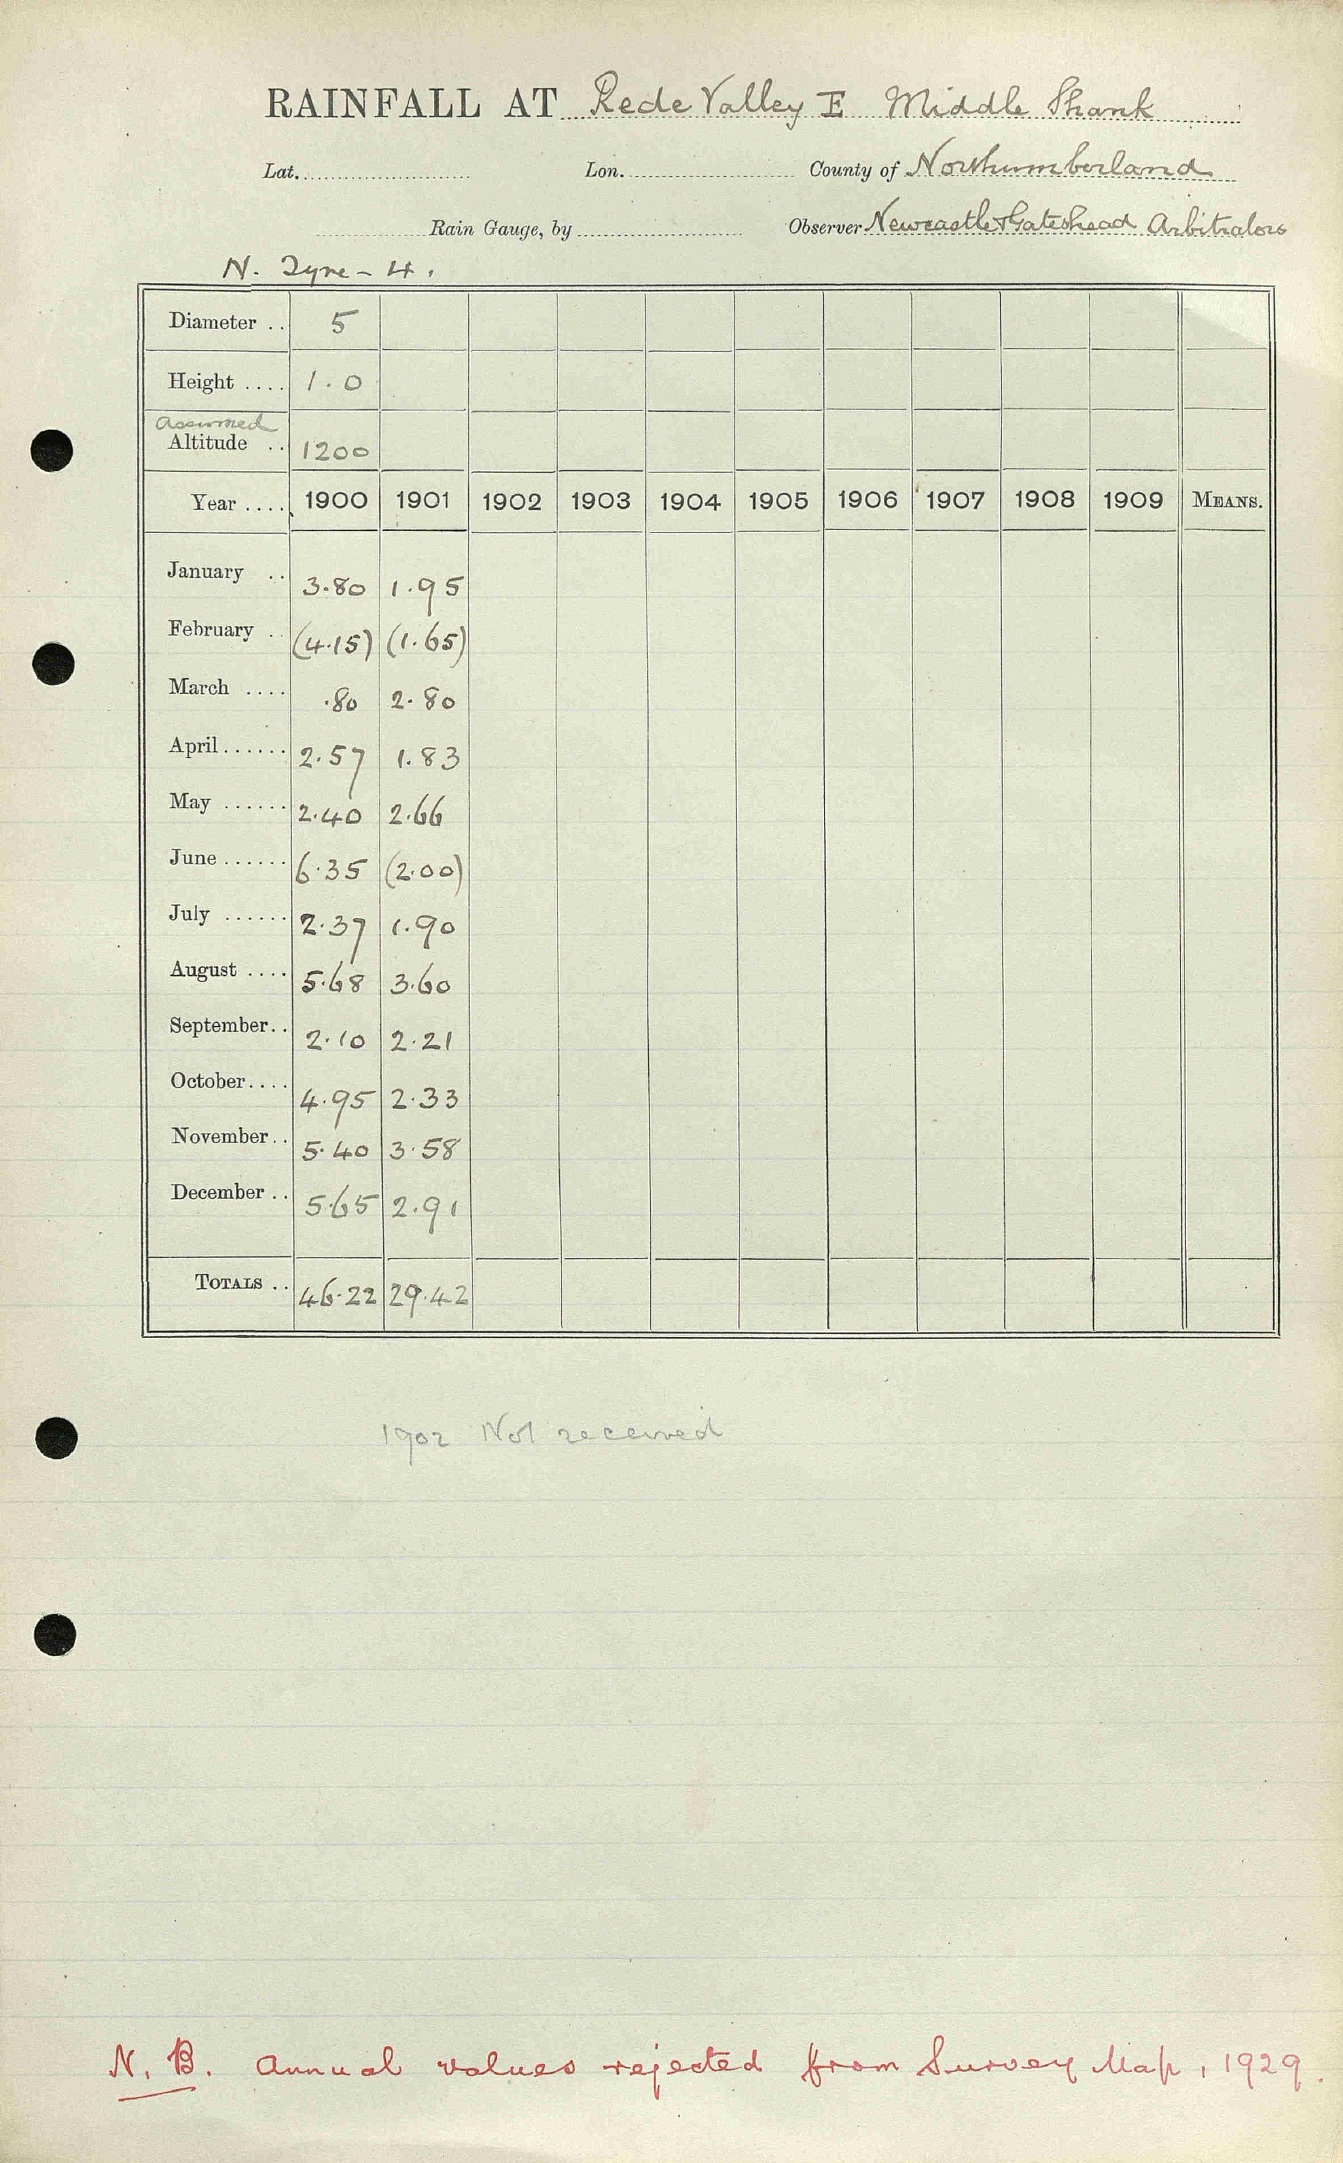 RAINFALL AT Rede Valley E Middle Shank
Lat. Lon. County of Northumberland
Rain Gauge, by Observer Newcastle & Gateshead Arbitrators
N. Tyne - 4.
Diameter .. 5
Height .... 1.0
Assumed
Altitude .. 1200
Year .... 1900 1901 1902 1903 1904 1905 1906 1907 1908 1909 MEANS.
January .. 3.80 1.95
February .. (4.15) (1.65)
March .... .80 2.80
April ...... 2.57 1.83
May ...... 2.40 2.66
June ...... 6.35 (2.00)
July ...... 2.37 1.90
August .... 5.68 3.60
September.. 2.10 2.21
October.... 4.95 2.33
November.. 5.40 3.58
December .. 5.65 2.91
TOTALS .. 46.22 29.42
1902 Not received
N. B. Annual values rejected from Survey Map, 1929.